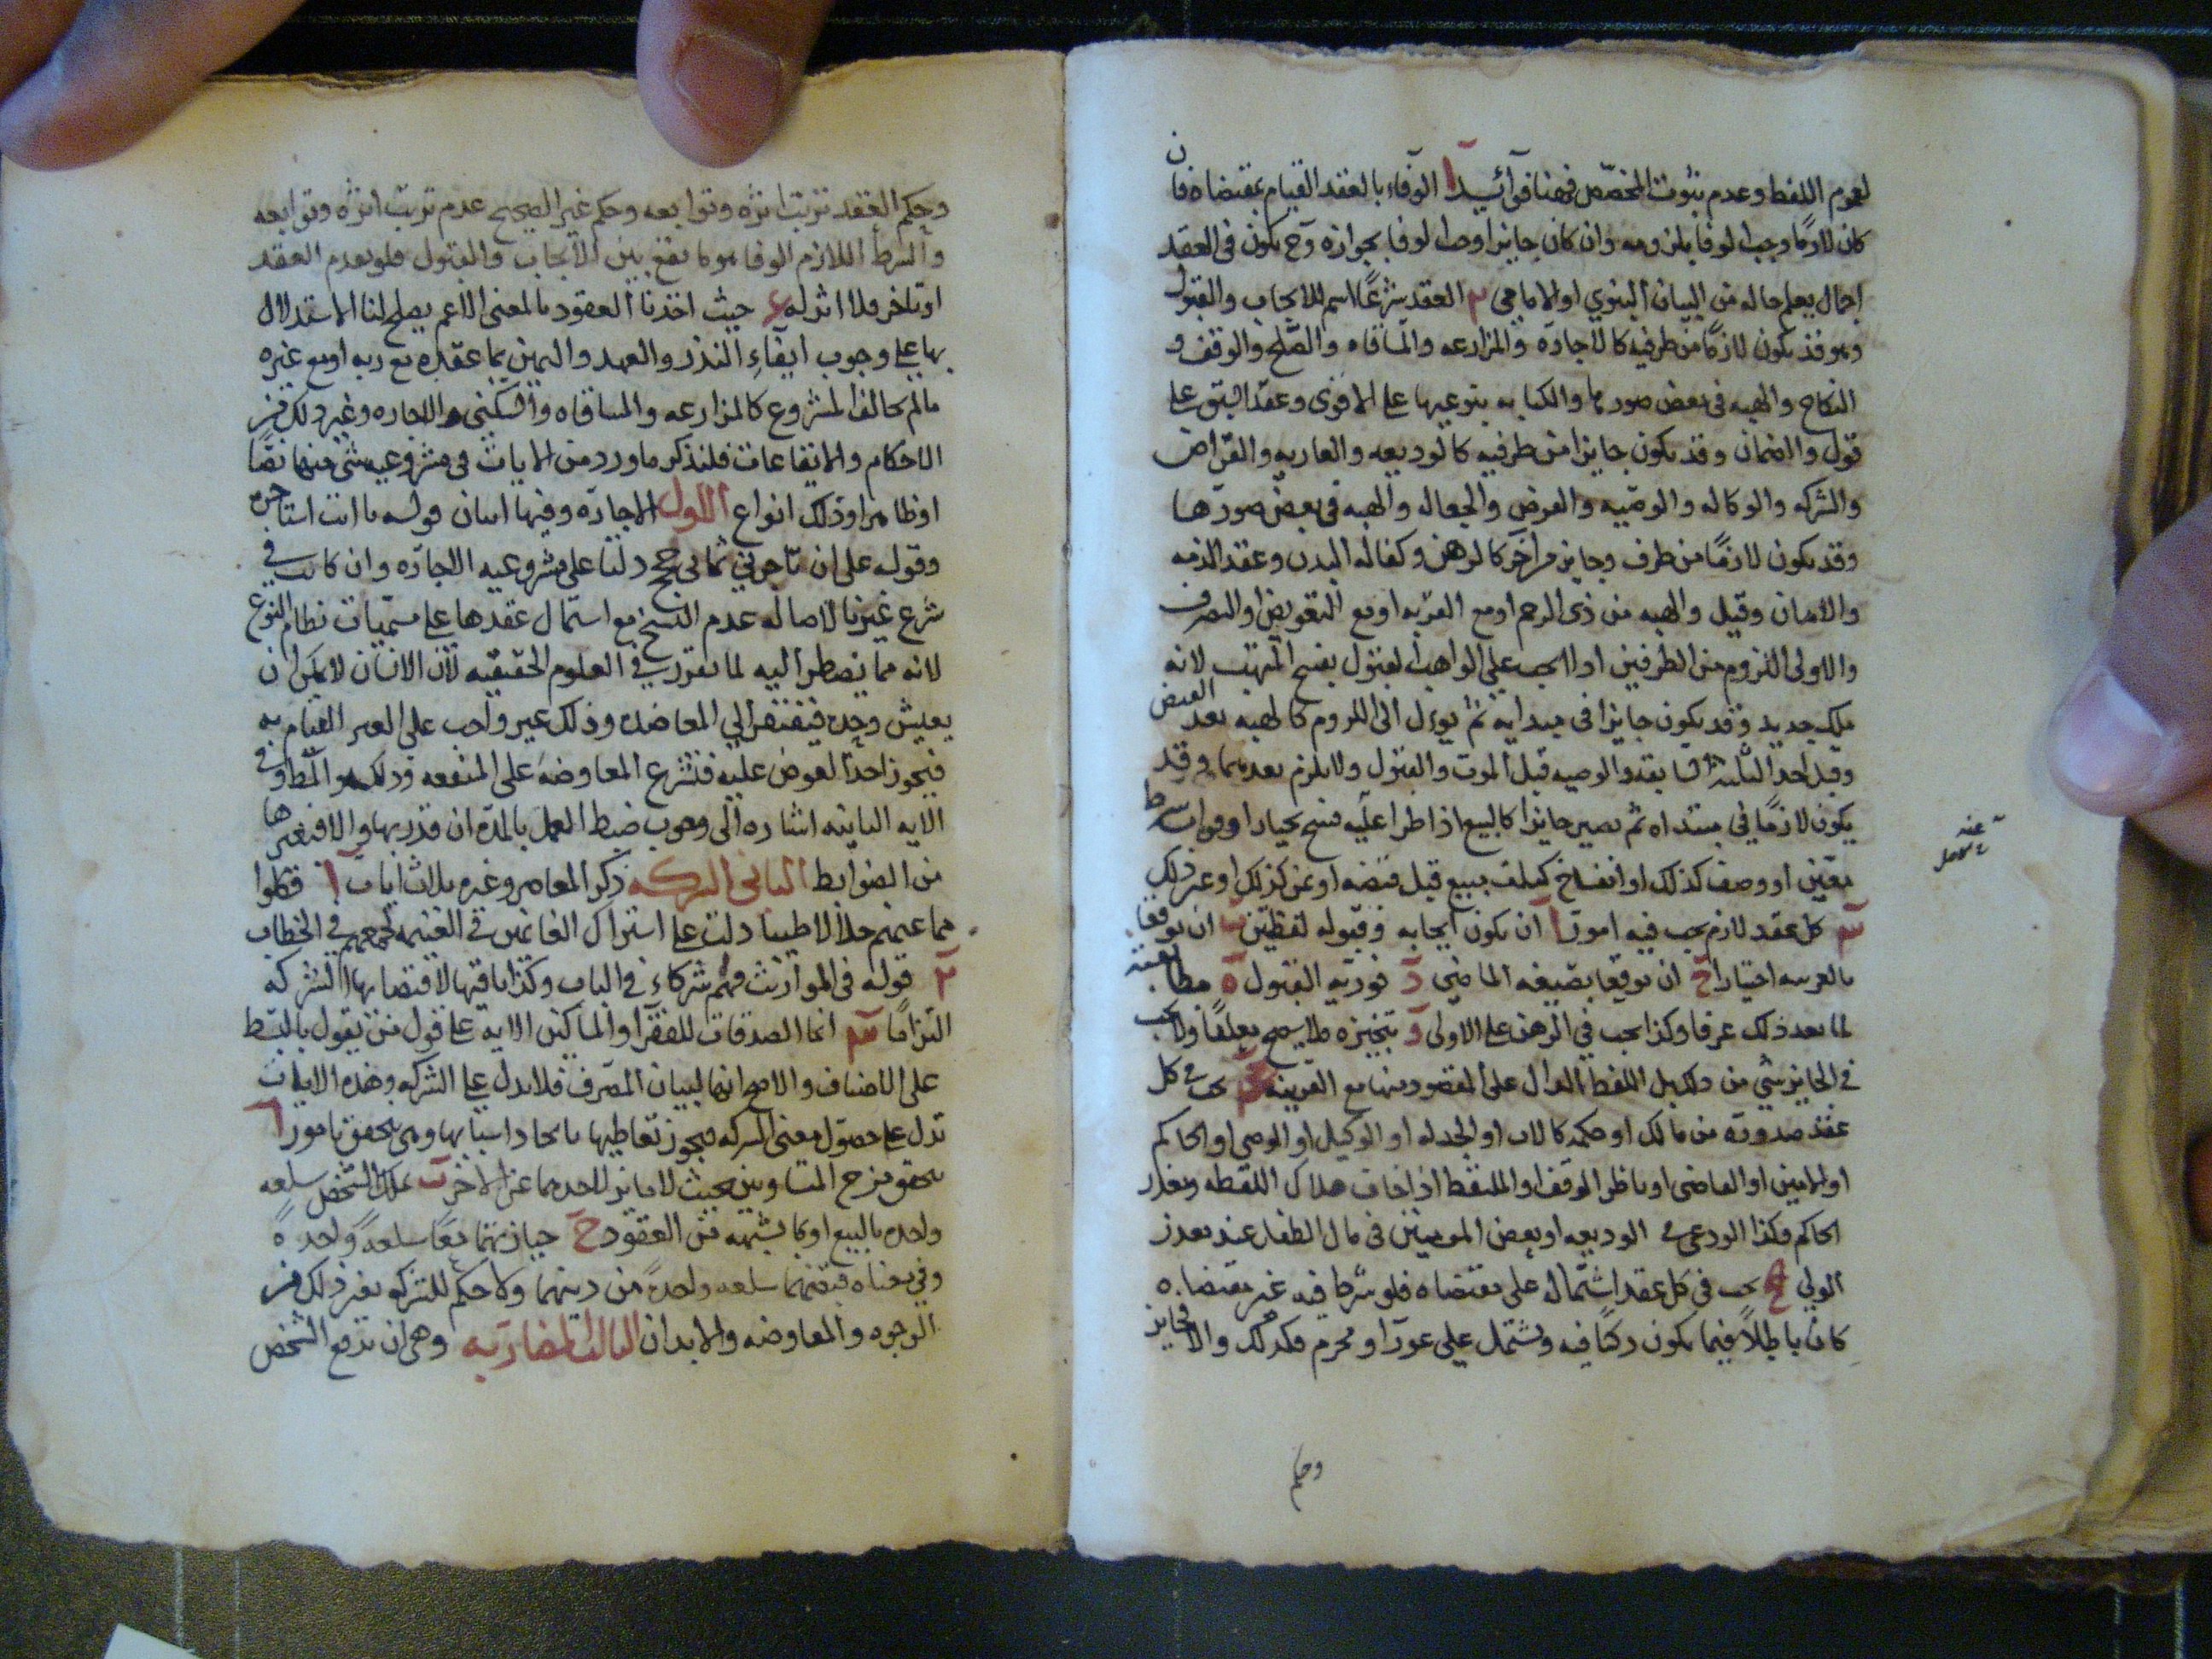 لعموم اللفظ وعدم ثبوت المخصص فهنا فوآئد آ الوفاء بالعقد القيام بمقتضاه فان
كان لازمًا وجب الوفا بلزومه وان كان جايزا وجب الوفا بجوازه وح يكون في العقد
اجمال يعلم حاله من البيان النبوي او الامامي ٢ العقد شرعًا اسم للايجاب والقبول
وهو قد يكون لازمًا من طرفيه كالاجارة والمزارعه والمساقاه والصّلح والوقف و
النكاح والهبه في بعض صورها والكتابه بنوعيها على الاقوى وعقد السبق على
قول والضمان وقد يكون جايزا من طرفيه كالوديعه والعاريه والقراض
والشركه والوكاله والوصّيه والقرض والجعاله والهبه في بعض صورها
وقد يكون لازمًا من طرف وجايز من آخر كالرهن وكفالة البدن وعقد الذمه
والامان وقيل والهبه من ذى الرحم او مع القربه او مع التعويض او التصرف
والاولى اللزوم من الطرفين اولا يجب على الواهب القبول بفسخ المتهب لانه
ملك جديد وقد يكون جايزا في مبدايه ثم يوءل الى اللزوم كالهبه بعد القبض
وقبل احد الثلثه السابقه والوصيه قبل الموت والقبول ولا يلزم بعدهما وقد
يكون لازمًا في مبتداه ثم يصير جايزا كالبيع اذا طرا عليه فسخ بخيار او فوات شرط
معيّن او وصف كذلك او انفساخ كتلف مبيع قبل قبضه او ثمن كذلك او غير ذلك
٣ كل عقد لازم يجب فيه امور آ ان يكون ايجابه وقبوله لفظيّن ب ان يوقعا
بالعربيه اختيارا ج ان يوقعا بصيغه الماضي د فوريه القبول ه مطابقته
لما بعد ذلك عرفا وكذا يجب في الرهن على الاولى و تنجيزه فلا يصح معلقًا ولا يجب
في الجايز شي من ذلك بل اللفظ الدال على المقصود منها مع القرينه يجب في كل
عقد صدوره من مالك او حكمه كالاب او الجد له او الوكيل او الوصي او الحاكم
او امين او القاضى او ناظر الوقف او الملتقط اذا خاف هلاك اللقطه وتعذر
الحاكم وكذا الودعى في الوديعه او بعض المومنين في مال الطفل عند تعذر
الولي يجب في كل عقد اشتماله على مقتضاه فلو شرط فيه غير مقتضاه
كان باطلًا فيما يكون ركنًا فيه ويشتمل على عور او محرم فكذلك والا فجايز
وحكم
وحكم العقد ترتب اثره وتوابعه وحكم غير الصحيح عدم ترتب اثره وتوابعه
والشرط اللازم الوفا هو ما يقع بين الايجاب والقبول فلو تقدم العقد
او تاخر فلا اثر له ع حيث اخذنا العقود بالمعنى الاعم يصلح لنا الاستدلال
بها على وجوب ايفآءِ النذر والعهد واليمين بما عقده مع ربه او مع غيره
مالم يخالف المشروع كالمزارعه والمساقاه والسكنى والاجاره وغير ذلك من
الاحكام والايقاعات فلنذكر ما ورد من الايات في مشروعيه شئ منها نصًّا
او ظاهرا وذلك انواع الاول الاجارة وفيها ايتان قوله يا ابت استاجره
وقوله على ان تاجرني ثماني حجج دلتا على مشروعيه الاجارة وان كانت في
شرع غيرنا لاصالة عدم النسخ مع اشتمال عقدها على مسميات نظام النوع
لانه مما يضطر اليه لما تقرر في العلوم الحقيقيه لان الانسان لا يمكن ان
يعيش وحده فيفتقر الى المعاضده وذلك غير واجب على الغير القيام به
فيجوز اخذ العوض عليه فتشرع المعاوضه على المنفعه وذلك هو المط وفي
الايه الثانيه اشاره الى وجوب ضبط العمل بالمدة ان قدر بها والا فبغيرها
من الضوابط الثاني الشركه ذكر المعاصر وغيره ثلاث ايات آ فكلوا
مما غنمتم حلالا طيبا دلت على اشتراك الغانمين في الغنيمه لجمعهم في الخطاب
٢ قوله في المواريث فهم شركاء في الباب وكذا باقيها لاقتضايها الشركه
التزامًا ٣ انما الصدقات للفقرآ والمساكين الاية على قول من يقول بالبسط
على الاصناف والاصح انها لبيان المصرف فلا يدل على الشركه وهذه الايات
تدل على حصول معنى الشركه فيجوز تعاطيها باتحاد اسبابها وهى تتحقق بامور آ
يتحقق مزج المتساويين بحيث لا مايز لاحدهما عن الاخر ب تملك الشخص سلعه
واحده بالبيع او ما يشبهه من العقود ج حيازتهما معًا سلعه واحدة
وفي معناه قبضهما سلعه واحدة من دينهما ولا حكم للشركه بغير ذلك من
الوجوه والمعاوضه والابدان الثالث المضاربه وهى ان يدفع الشخص